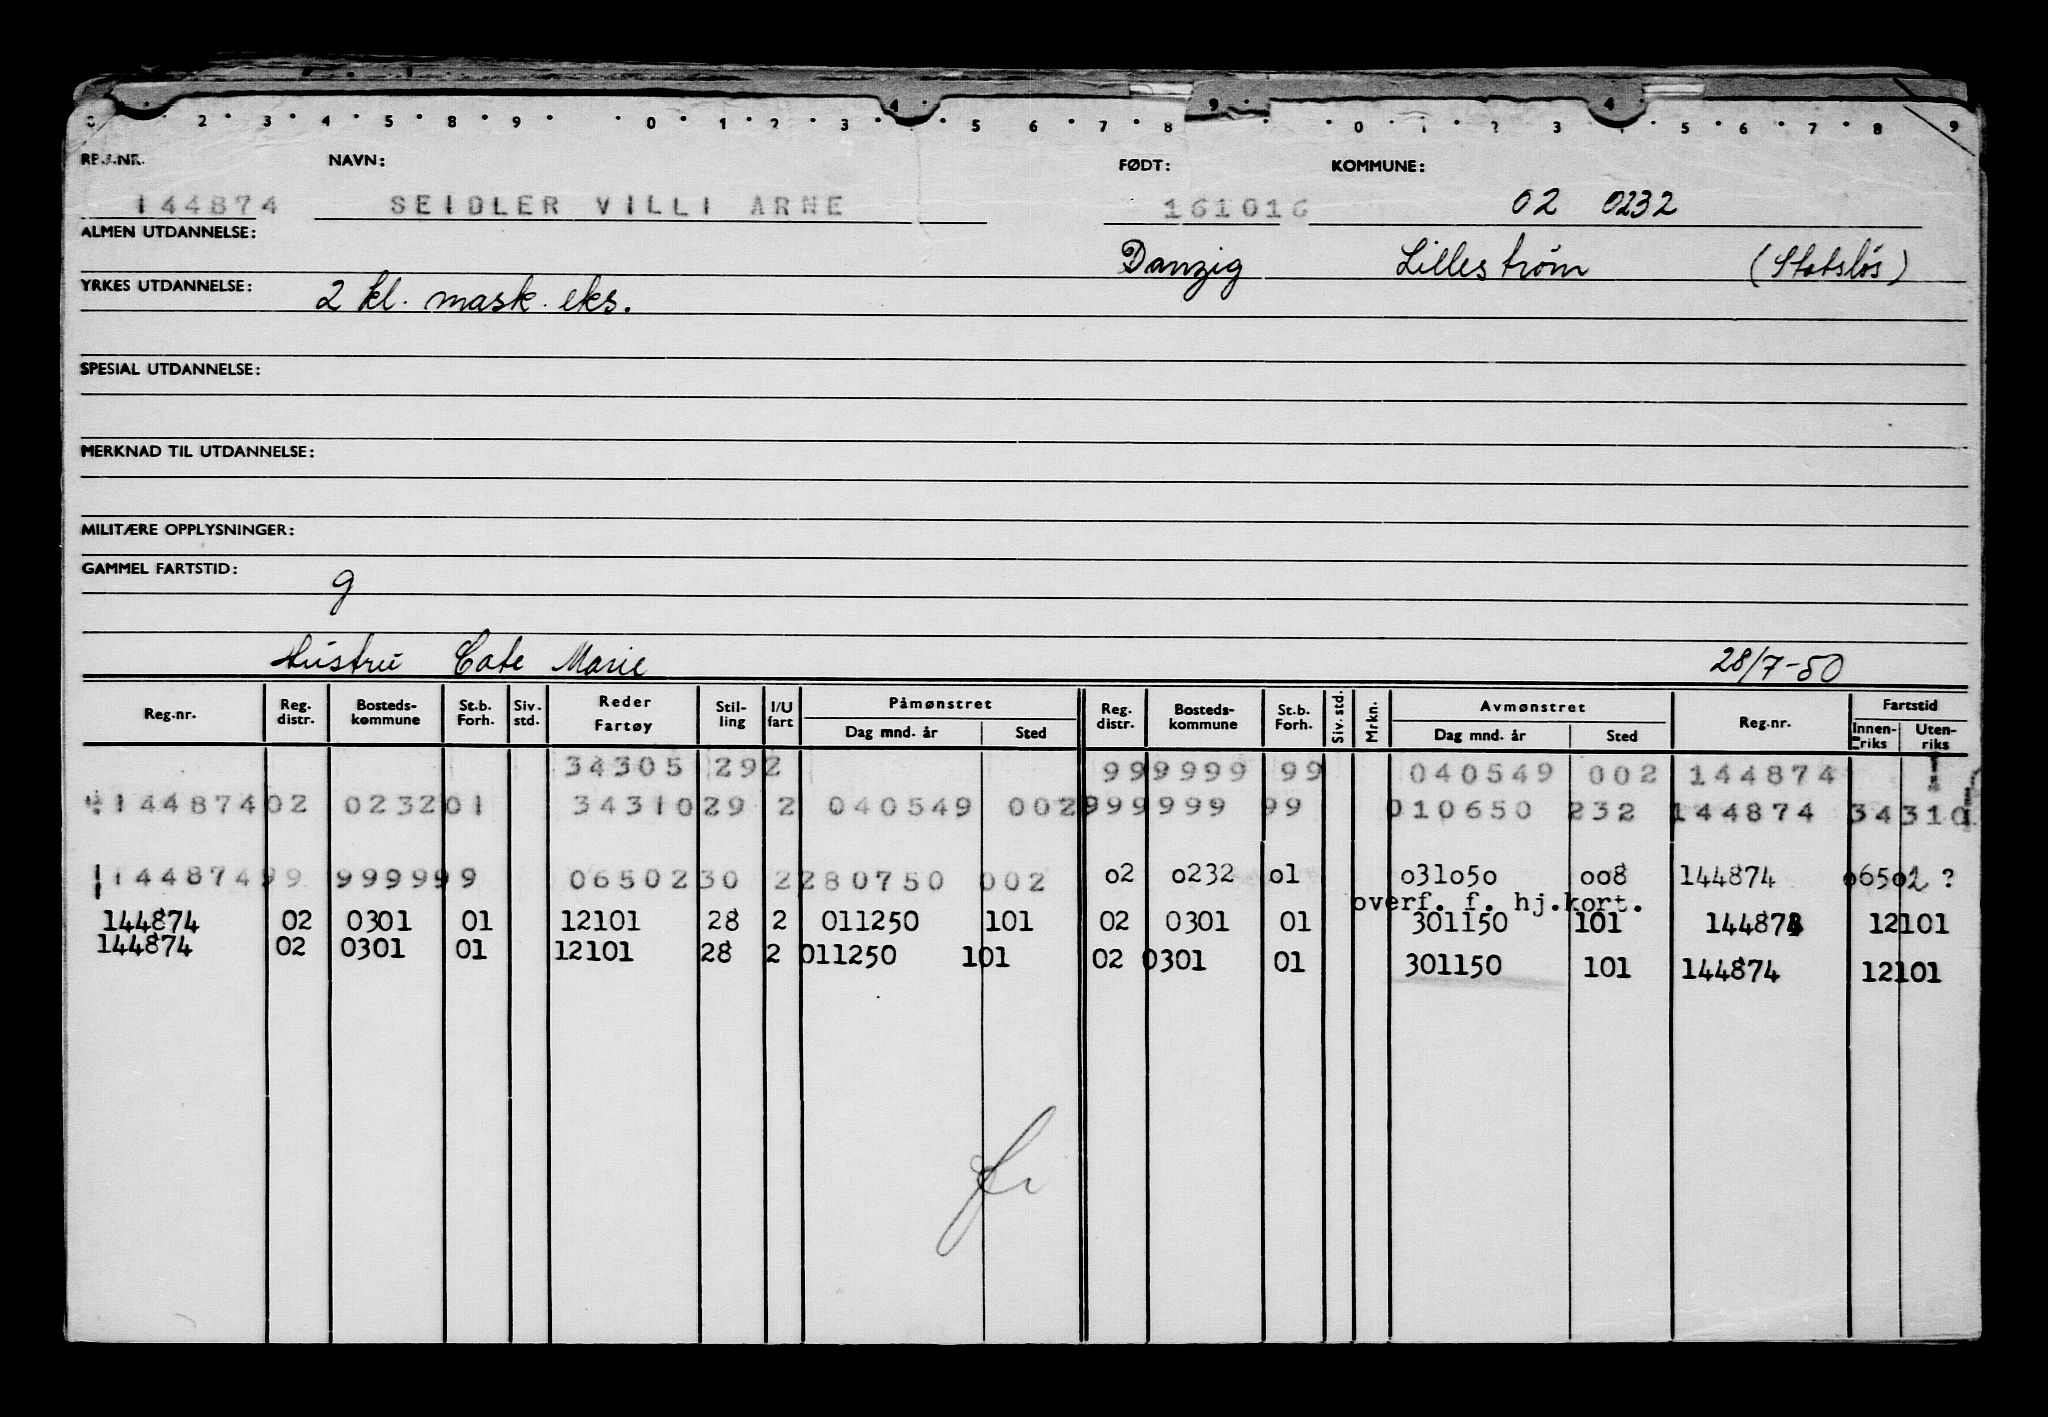 2 3 4 5 8 9 0 1 2 3 4 5 6 7 8 9 0 1 2 3 4 5 6 7 8 9
NAVN: FØDT: KOMMUNE:
144874 SEIDLER VILLI ARNE 161016 02 0232
ALMEN UTDANNELSE:
Danzig Lillestrøm (Statsløs)
YRKES UTDANNELSE: 2 kl. mask. eks.
SPESIAL UTDANNELSE:
MERKNAD TIL UTDANNELSE:
MILITÆRE OPPLYSNINGER:
GAMMEL FARTSTID: 9
Hustru Cate Marie 28/7-50
Reg.nr. Reg. distr. Bosteds-kommune St.b. Forh. Siv. std. Reder Fartøy Stil-ling I/U fart Påmønstret Dag mnd. år Sted Reg. distr. Bosteds-kommune St.b. Forh. Siv. std. Mrkn. Avmønstret Dag mnd. år Sted Reg.nr. Fartstid Innen-riks Uten-riks
34305 292 999999 99 040549 002 144874
144874 02 0232 01 34310 29 2 040549 002 999999 99 010650 232 144874 34310
144874 99 9999 99 06502 30 2 280750 002 02 0232 01 031050 008 144874 06502 ?
overf. f. hj.kort.
144874 02 0301 01 12101 28 2 011250 101 02 0301 01 301150 101 144874 12101
144874 02 0301 01 12101 28 2 011250 101 02 0301 01 301150 101 144874 12101